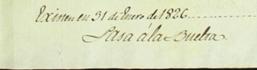 Existen en 31 de Enero de 1826.........
Pasa á la Buelta